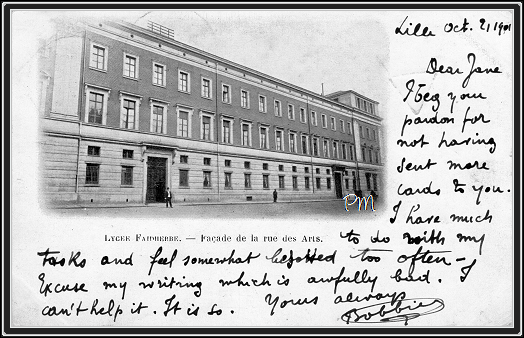 Lille Oct. 2, 1901
Dear Jane
I beg your
pardon for
not having
sent more
cards to you.
I have much
to do with my
tasks and feel somewhat too often –
Excuse my writing which is awfully bad. I
can't help it. It is so. Yours always
Bobbie
PM
LYCÉE FAIDHERBE. — Façade de la rue des Arts.